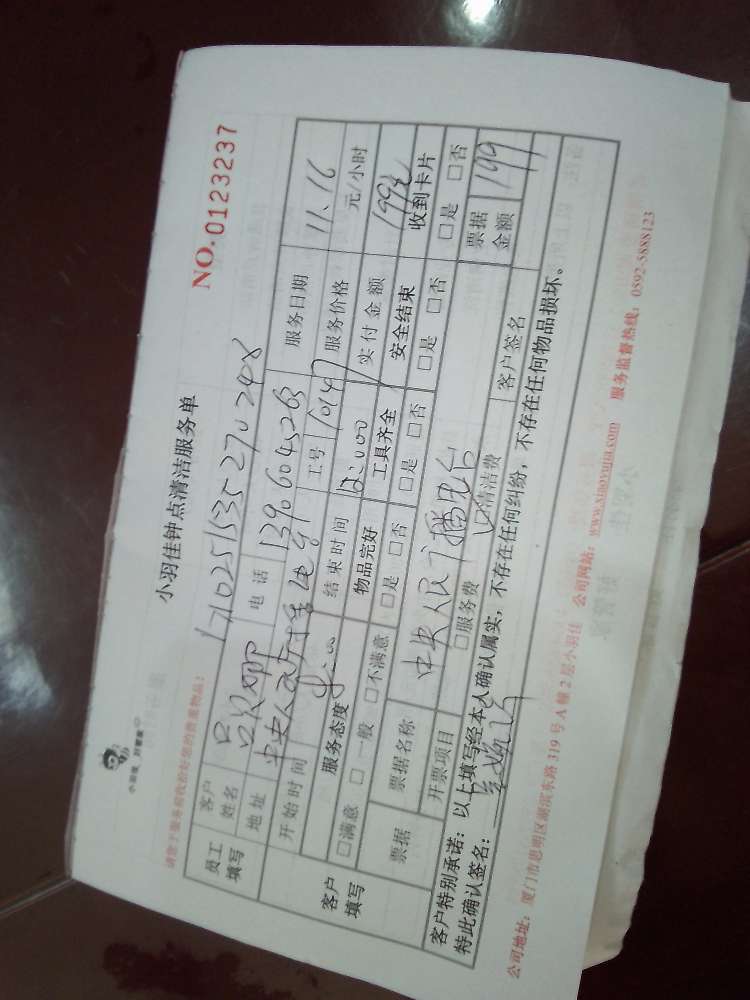 小羽佳 好管家
小羽佳钟点清洁服务单
NO.0123237
请您于服务前收拾好您的贵重物品:
员工填写
客户姓名 电话 13906045263 服务日期 11.16
地址 工号 服务价格 元/小时
开始时间 结束时间 12:00 实付金额 199元
客户填写
服务态度 物品完好 工具齐全 安全结束 收到卡片
□满意 □一般 □不满意 □是 □否 □是 □否 □是 □否 □是 □否
票据 票据名称 中央人民广播电台 票据金额 199
开票项目 □服务费 □清洁费 客户签名
客户特别承诺:以上填写经本人确认属实,不存在任何纠纷,不存在任何物品损坏。
特此确认签名:
公司地址:厦门市思明区湖滨东路319号A幢2层小羽佳 公司网站:www.xiaoyujia.com 服务监督热线:0592-5888123